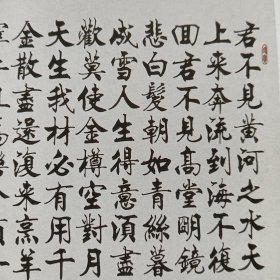 君不見黄河之水天
上来奔流到海不復
回君不見高堂明鏡
悲白髮朝如青絲暮
成雪人生得意須盡
歡莫使金樽空對月
天生我材必有用千
金散盡還復来烹羊